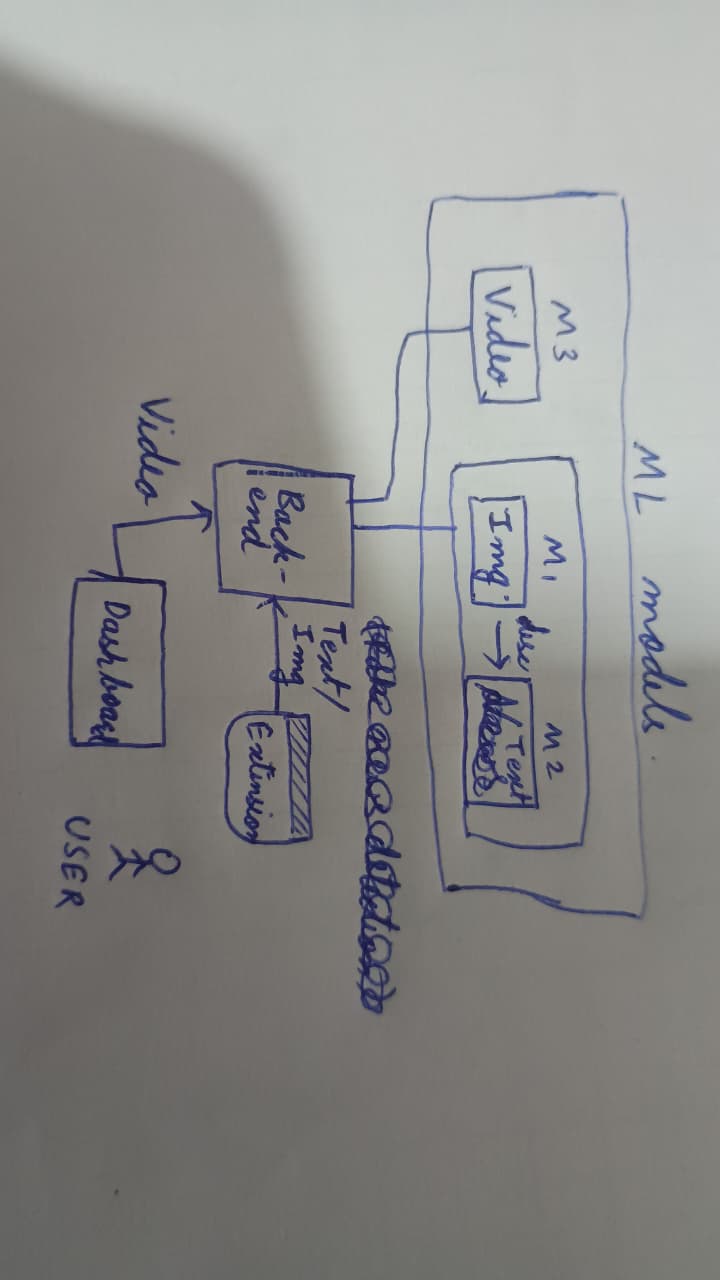 ML models.
M3
Video
M1
Img.
desc
M2
Text
Back-
end
Text/
Img
Extension
Video
Dashboard
USER